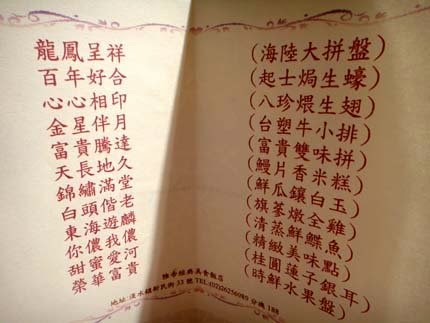 龍鳳呈祥 (海陸大拼盤)
百年好合 (起士焗生蠔)
心心相印 (八珍煨生翅)
金星伴月 (台塑牛小排)
富貴騰達 (富貴雙味拼)
天長地久 (鰻片香米糕)
錦繡滿堂 (鮮瓜鑲白玉)
白頭偕老 (旗蔘燉全雞)
東海遊麟 (清蒸鮮鰈魚)
你儂我儂 (精緻美味點)
甜蜜愛河 (桂圓蓮子銀耳)
榮華富貴 (時鮮水果盤)
經典美食飯店
地址:淡水鎮新民街 33 號 TEL:(02)26256089 分機 188